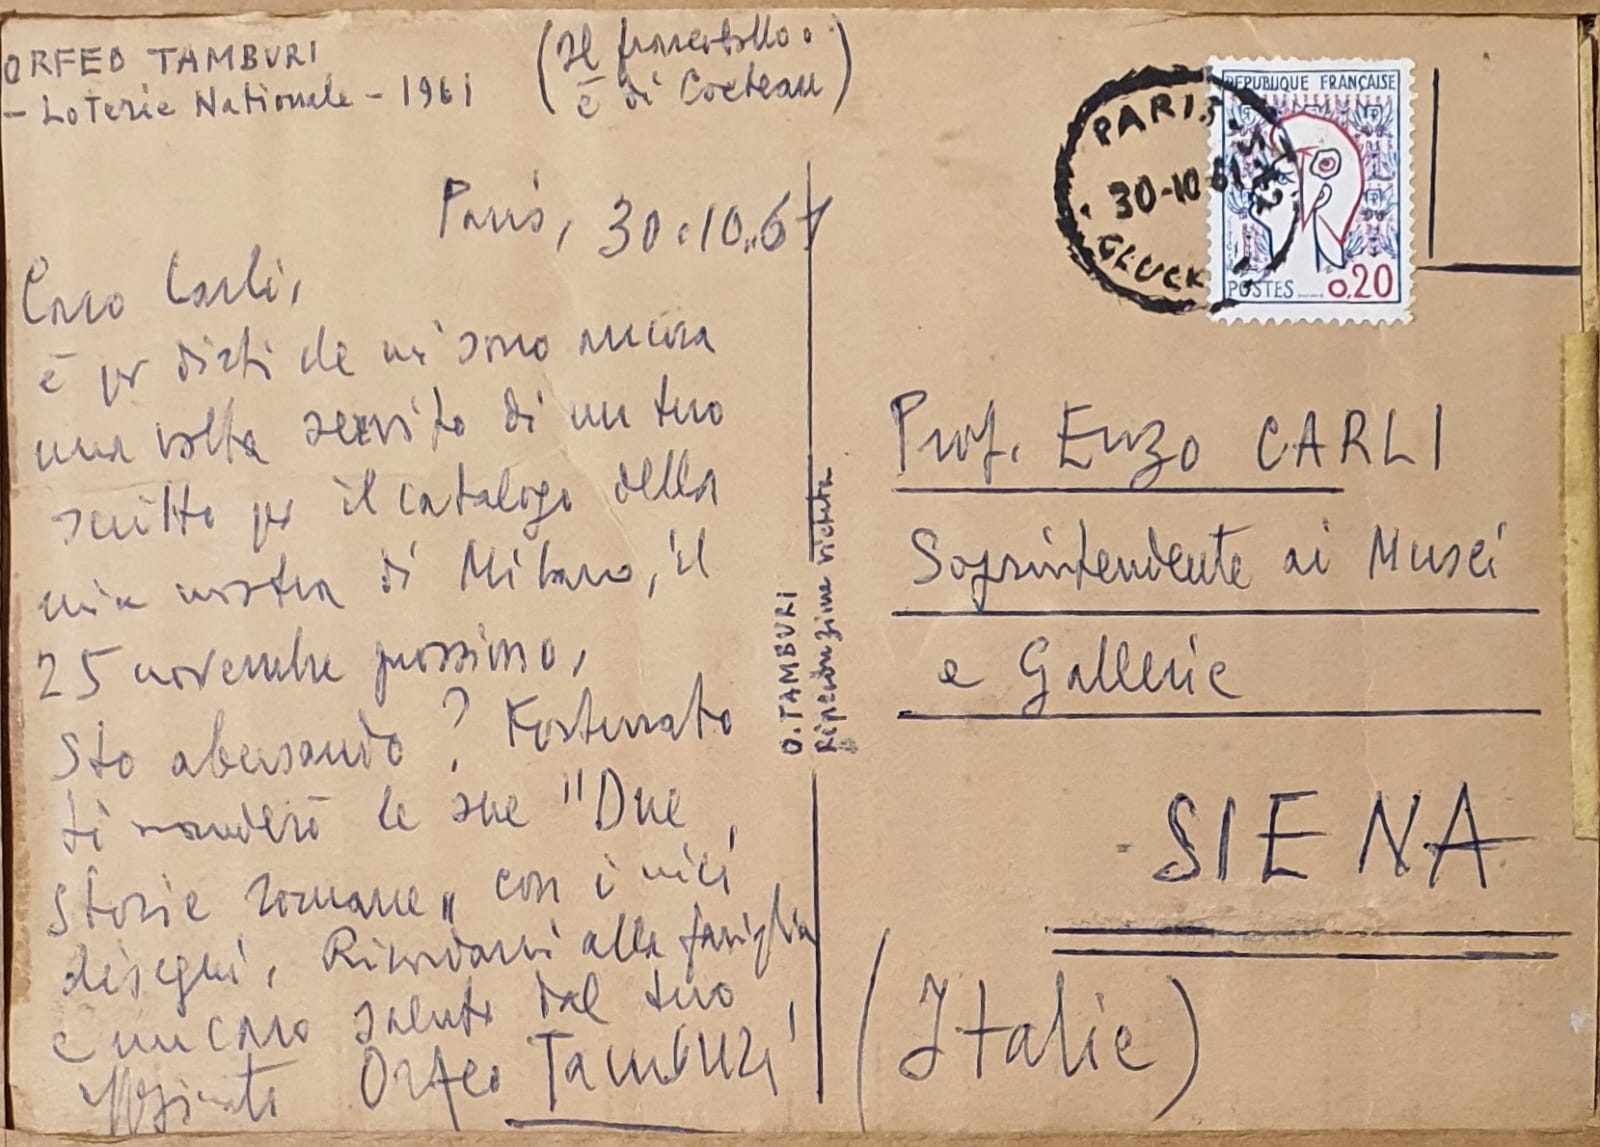 ORFEO TAMBURI
- Loterie Nationale - 1961
(Il francobollo
è di Cocteau)
Paris, 30.10.61
Caro Carli,
è per dirti che mi sono ancora
una volta servito di un tuo
scritto per il catalogo della
mia mostra di Milano, il
25 novembre prossimo,
Sto abusando? Fortunato
ti manderò le sue "Due
storie romane" con i miei
disegni. Ricordami alla famiglia
e un caro saluto dal tuo
Orfeo Tamburi
O. TAMBURI
Riproduzione vietata
PARIS
30-10 61
GLUCK
REPUBLIQUE FRANÇAISE
POSTES 0,20
Prof. Enzo CARLI
Soprintendente ai Musei
e Gallerie
SIENA
(Italie)